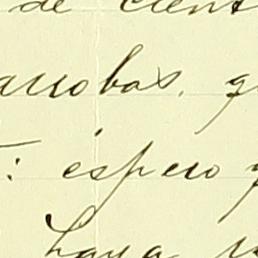 de cient
arrobas, q
: espero q
haya